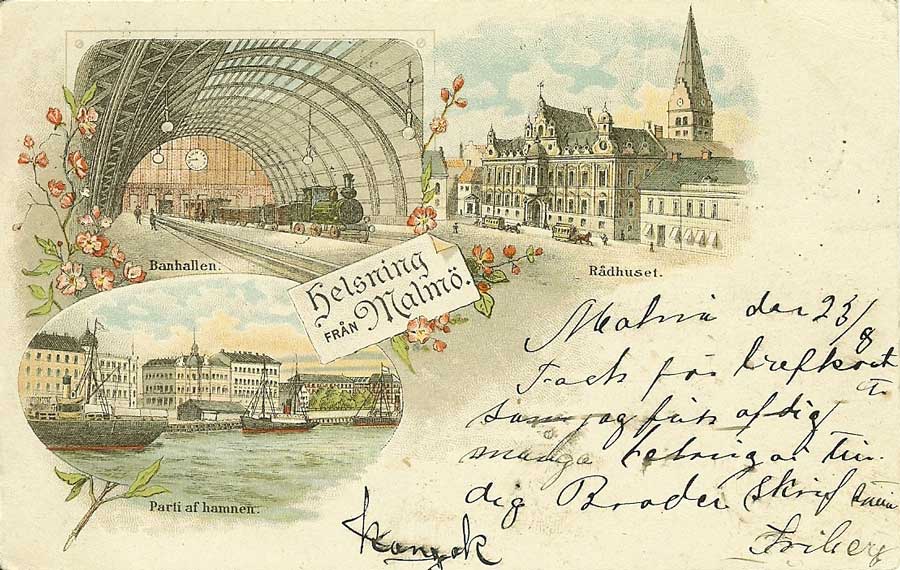 Banhallen.
Rådhuset.
Helsning
FRÅN Malmö.
Parti af hamnen.
Malmö den 23/8
Tack för brefkort
som jag fått af dig
många helsningar till
dig Broder skrif
Friberg